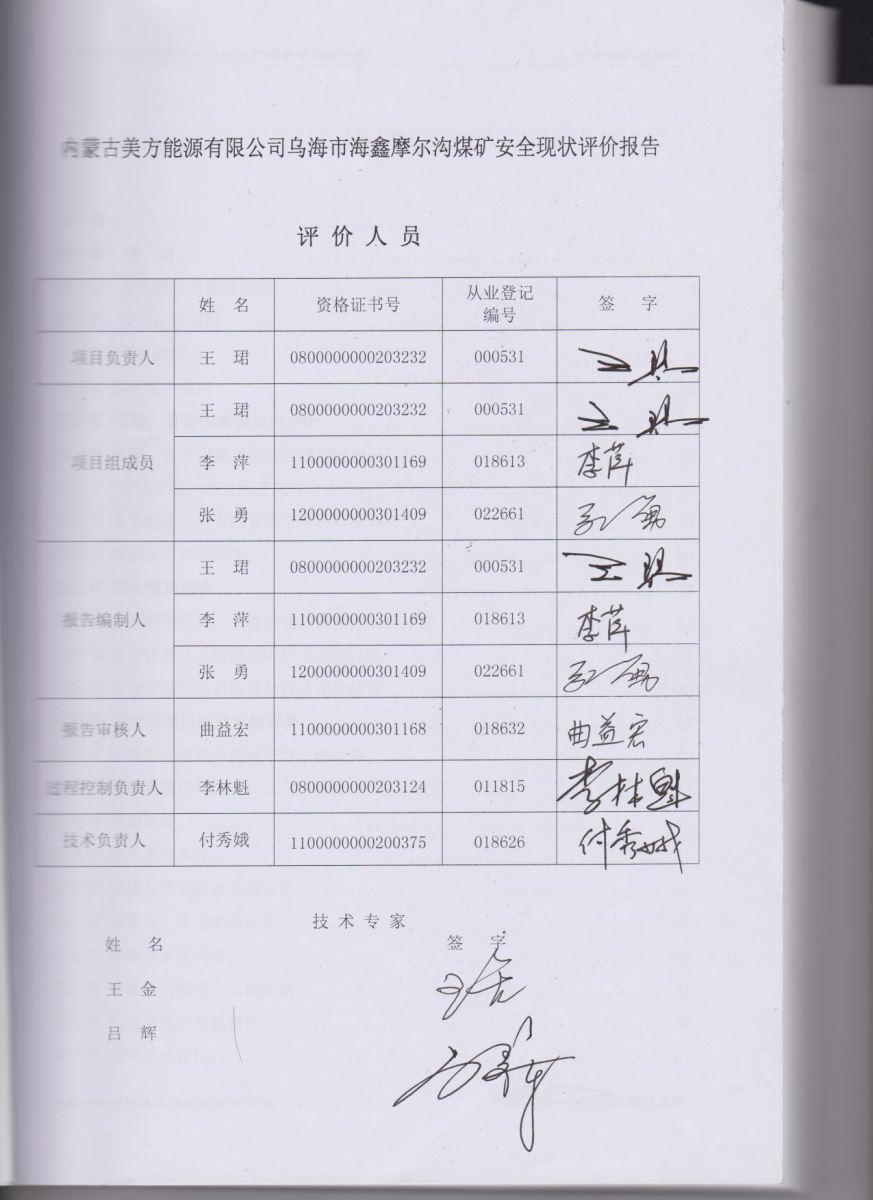 内蒙古美方能源有限公司乌海市海鑫摩尔沟煤矿安全现状评价报告
评价人员
姓 名 资格证书号 从业登记编号 签 字
项目负责人 王 珺 0800000000203232 000531 王珺
项目组成员 王 珺 0800000000203232 000531 王珺
李 萍 1100000000301169 018613 李萍
张 勇 1200000000301409 022661 张勇
报告编制人 王 珺 0800000000203232 000531 王珺
李 萍 1100000000301169 018613 李萍
张 勇 1200000000301409 022661 张勇
报告审核人 曲益宏 1100000000301168 018632 曲益宏
过程控制负责人 李林魁 0800000000203124 011815 李林魁
技术负责人 付秀娥 1100000000200375 018626 付秀娥
技术专家
姓 名 签 字
王 金 王金
吕 辉 吕辉